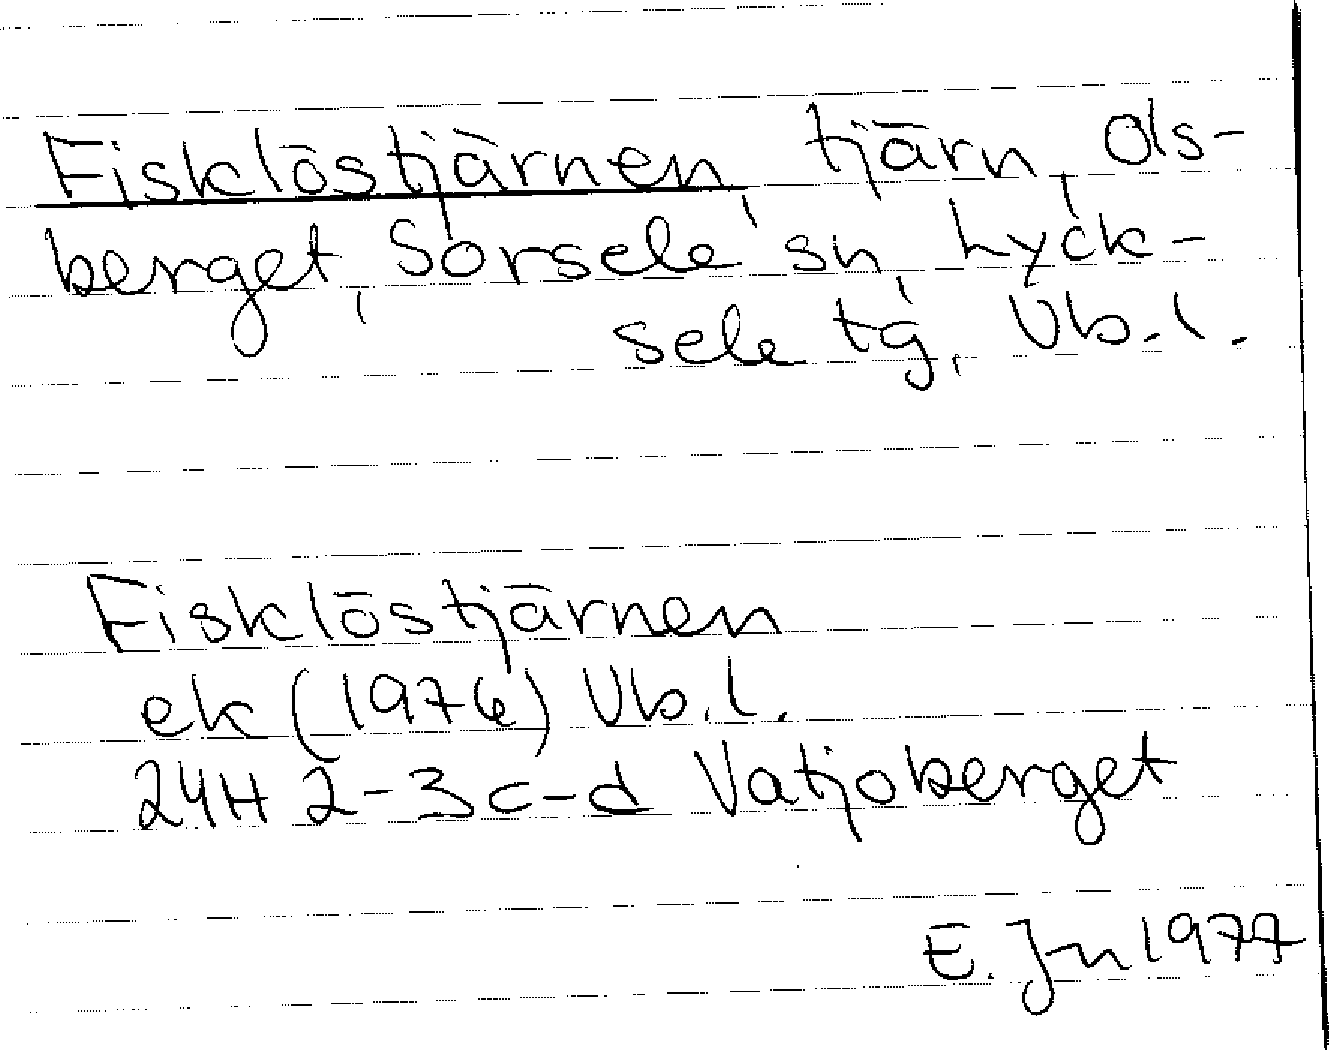 Fisklöstjärnen, tjärn, Ols-
berget, Sorsele sn, Lyck-
sele tg, Vb.l.
Fisklöstjärnen
ek (1976) Vb.l.
24H 2-3 c-d Vatjoberget
E. Jn 1977